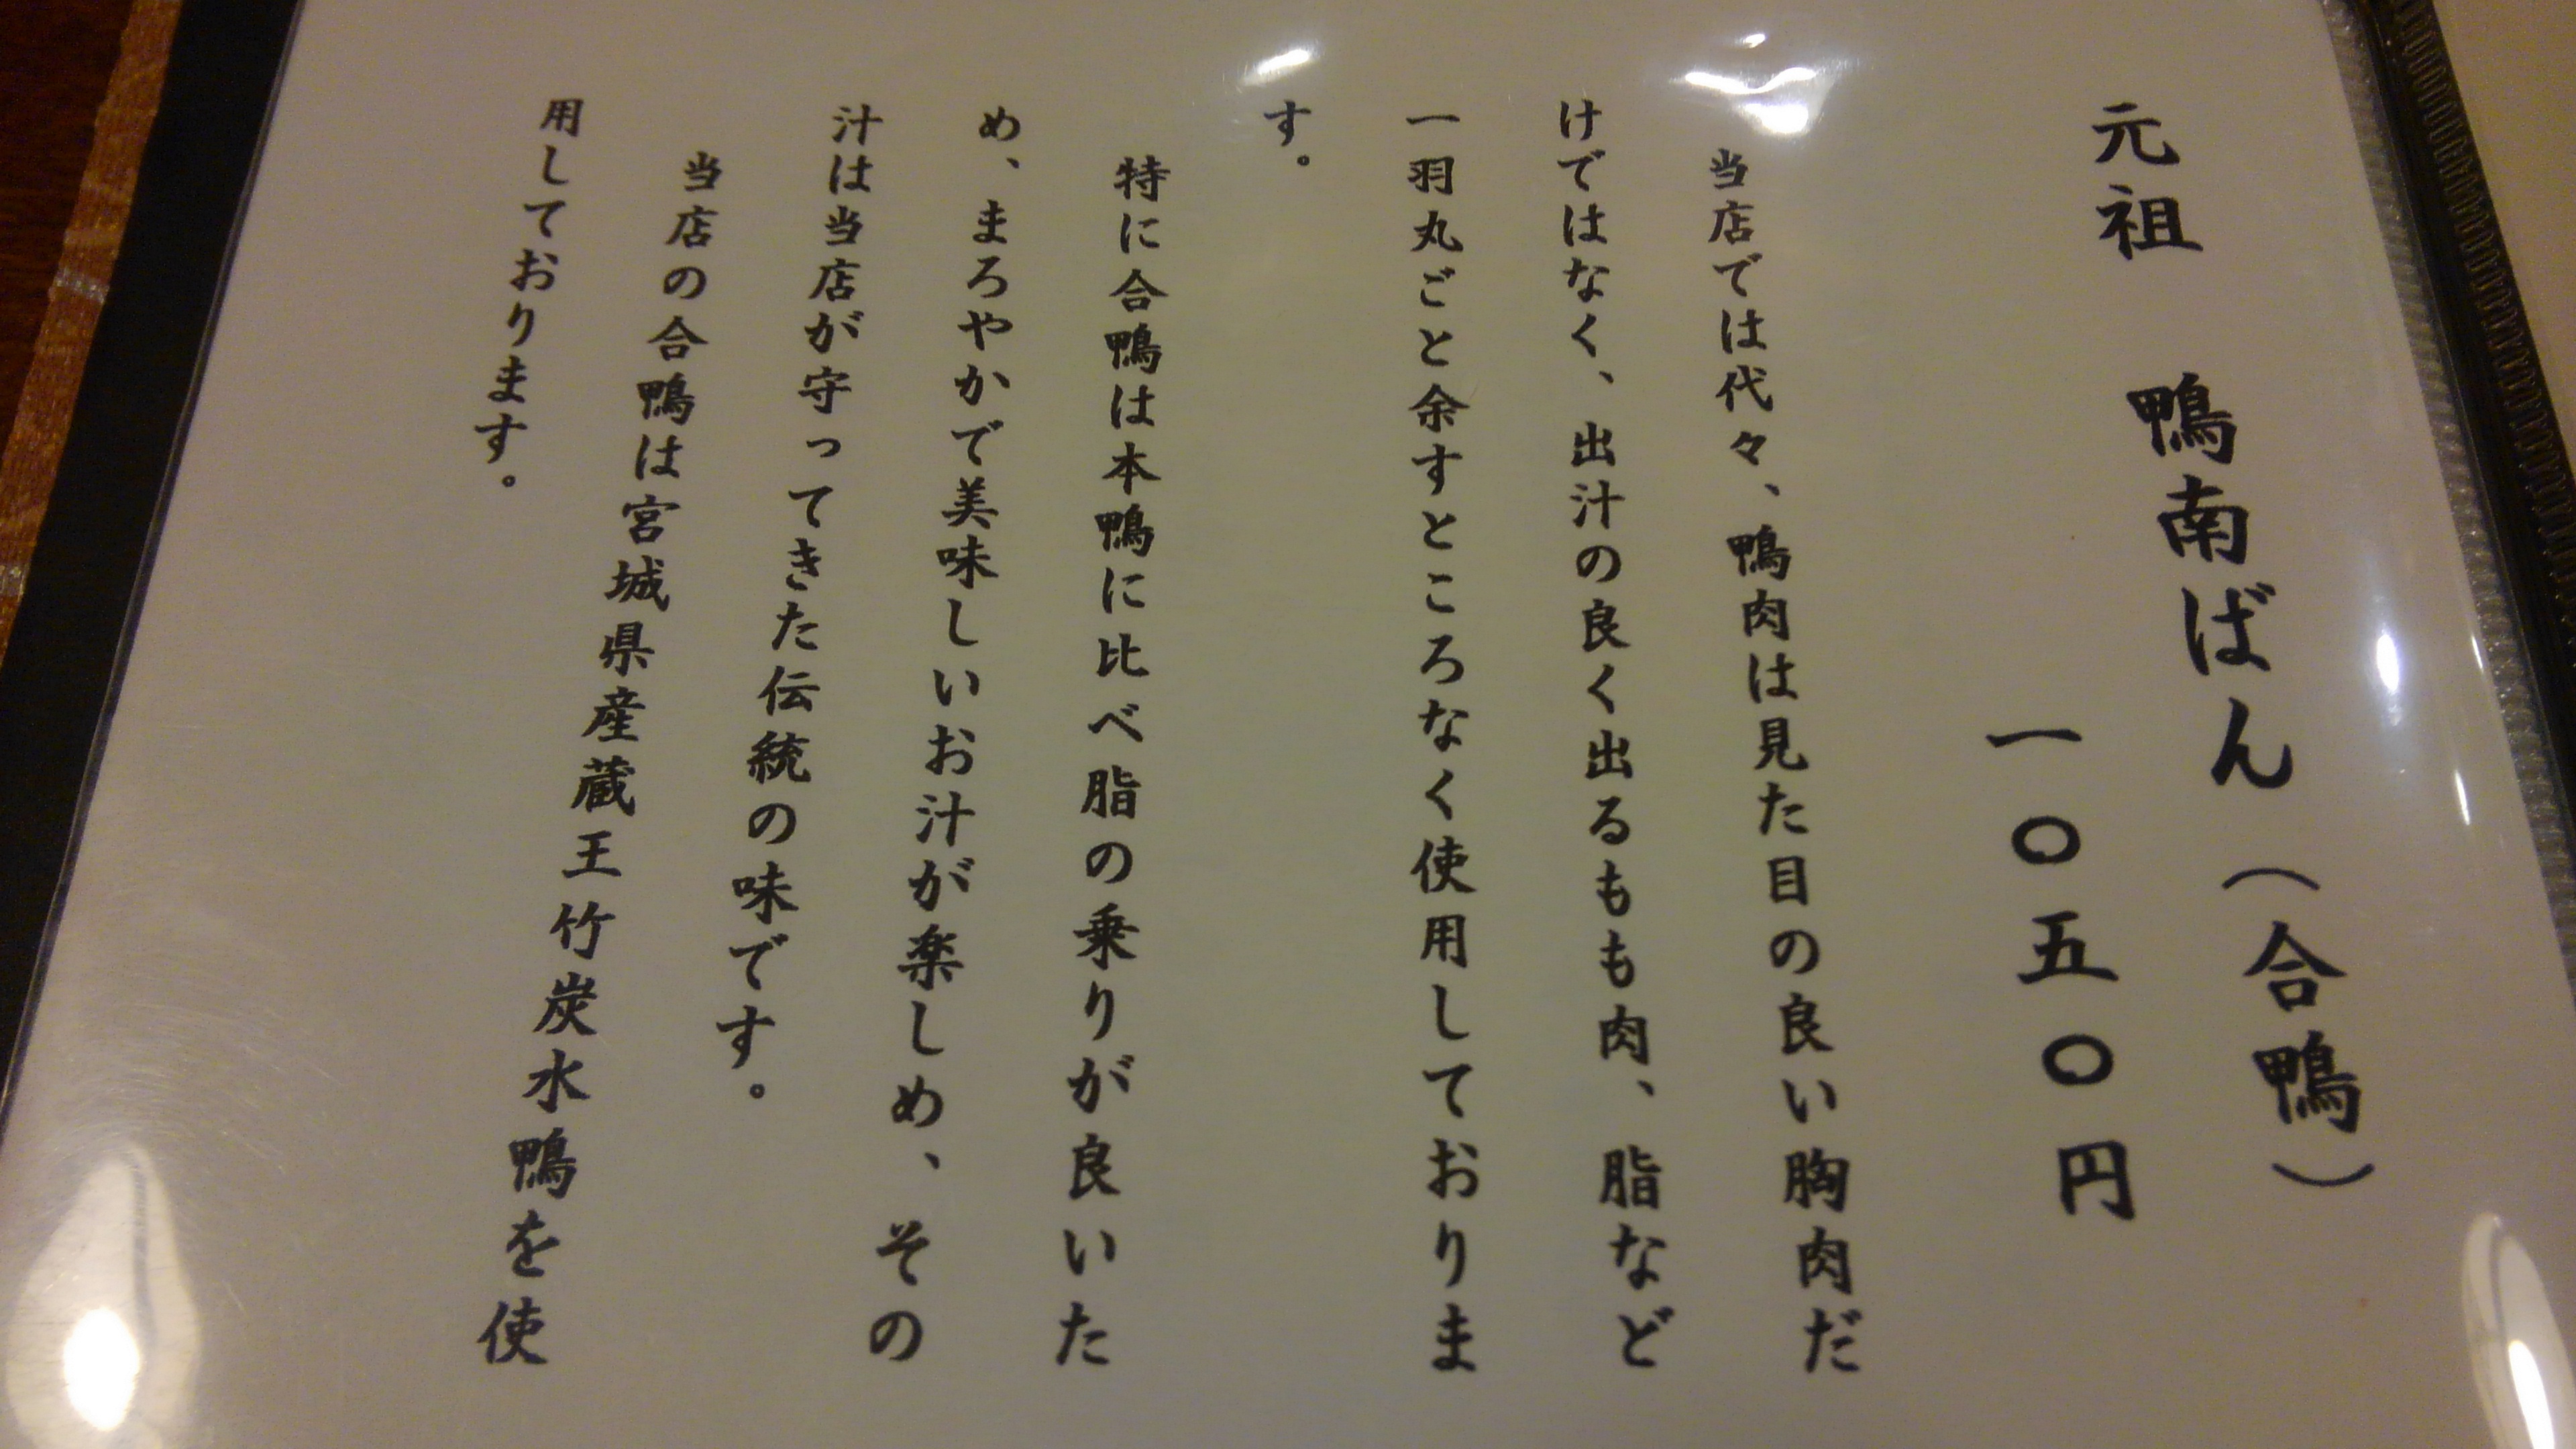 元祖　鴨南ばん（合鴨）
一〇五〇円
当店では代々、鴨肉は見た目の良い胸肉だ
けではなく、出汁の良く出るもも肉、脂など
一羽丸ごと余すところなく使用しておりま
す。
特に合鴨は本鴨に比べ脂の乗りが良いた
め、まろやかで美味しいお汁が楽しめ、その
汁は当店が守ってきた伝統の味です。
当店の合鴨は宮城県産蔵王竹炭水鴨を使
用しております。